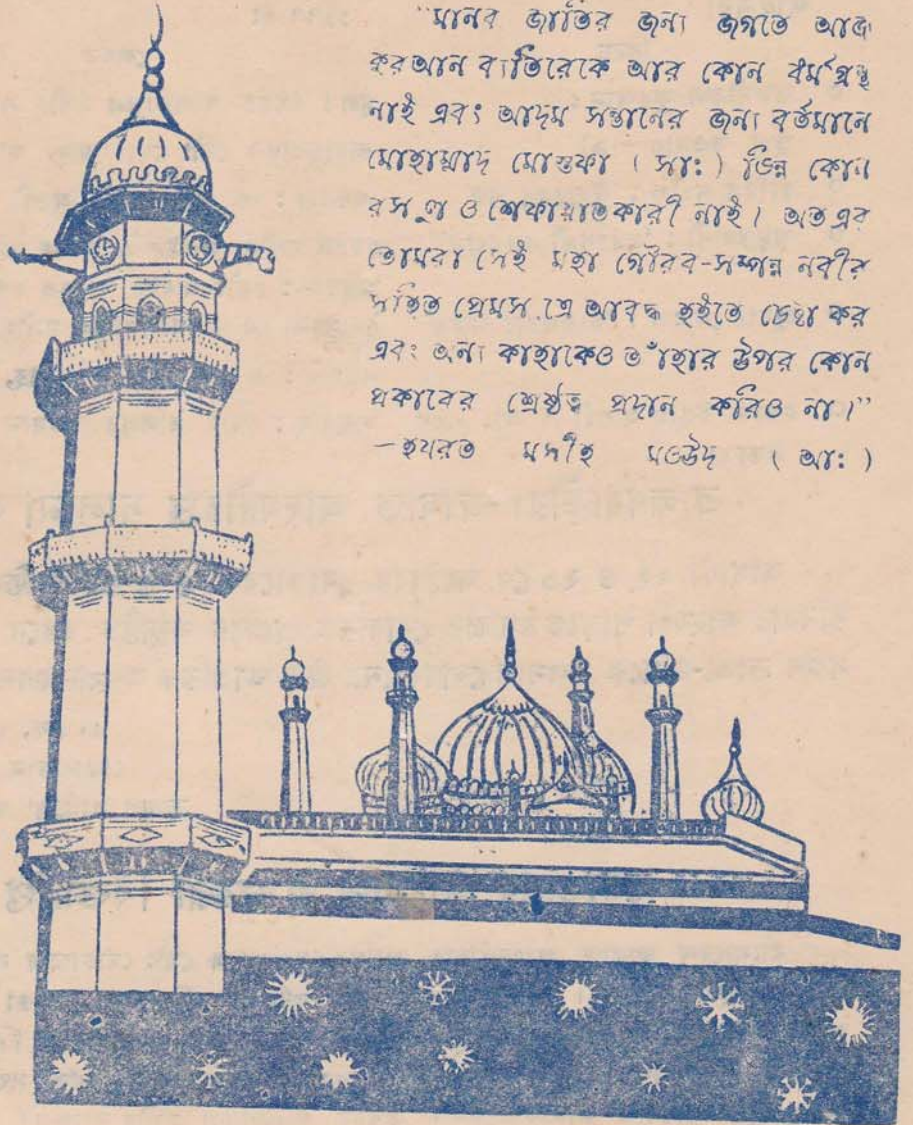 "মানব জাতির জন্য জগতে আজ
কুরআন ব্যতিরেকে আর কোন ধর্মগ্রন্থ
নাই এবং আদম সন্তানের জন্য বর্তমানে
মোহাম্মাদ মোস্তফা ( সাঃ ) ভিন্ন কোন
রসূল ও শেফায়াতকারী নাই। অতএব
তোমরা সেই মহা গৌরব-সম্পন্ন নবীর
সহিত প্রেমসূত্রে আবদ্ধ হইতে চেষ্টা কর
এবং অন্য কাহাকেও তাঁহার উপর কোন
প্রকারের শ্রেষ্ঠত্ব প্রদান করিও না।"
-হযরত মসীহ মওউদ ( আঃ )